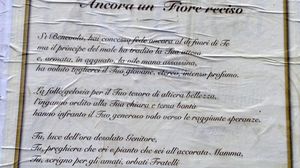 Ancora un Fiore reciso
Sì Benevolo, hai concesso fede ancora al di fuori di Te
ma il principe del male ha tradito la Tua attesa
e, armata, in agguato, la vile mano assassina,
ha voluto toglierci il Tuo giovane, etereo, intenso profumo.
La folle gelosia per il Tuo tesoro di altera bellezza,
l'inganno ordito alla Tua chiara e tersa bontà
hanno infranto il Tuo generoso volo verso le raggiunte speranze.
Tu, luce dell'ora desolato Genitore,
Tu, preghiera che eri e pianto che sei all'accorata Mamma,
Tu, scrigno per gli amati, orbati Fratelli